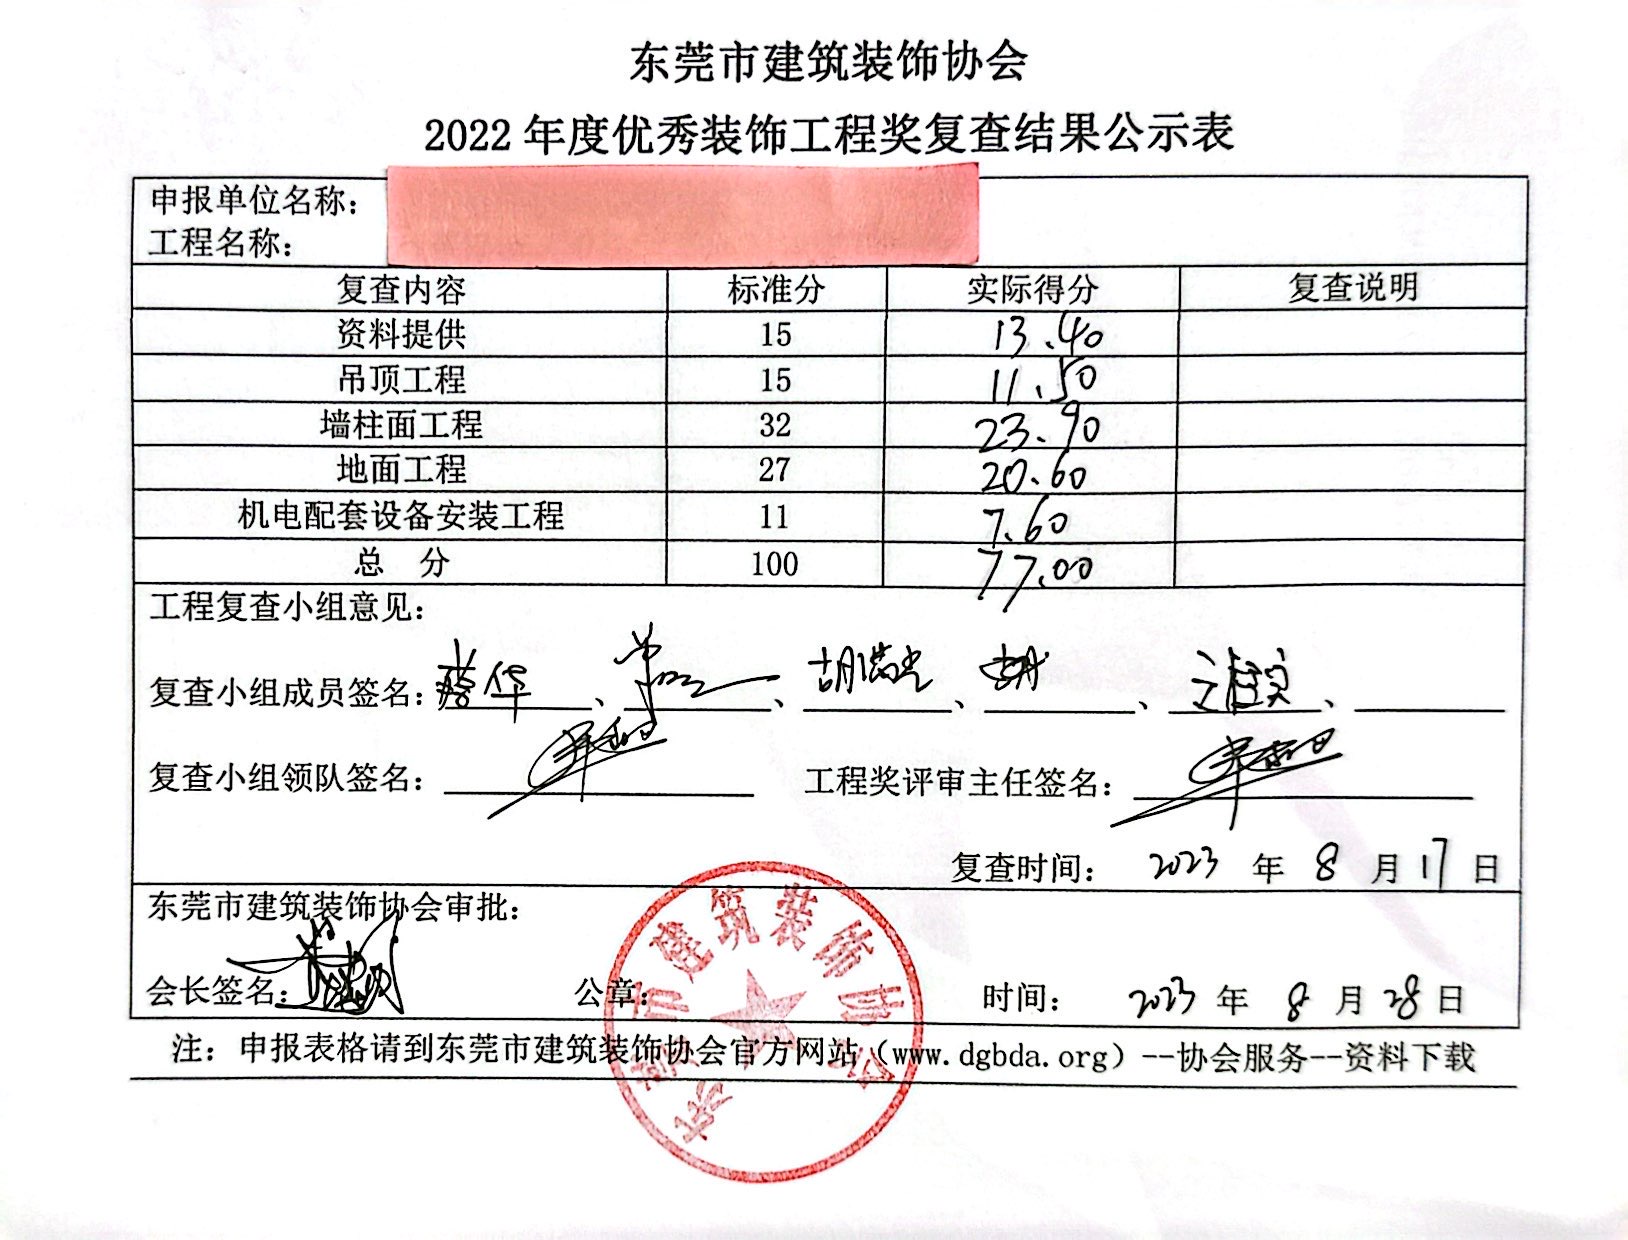 东莞市建筑装饰协会
2022 年度优秀装饰工程奖复查结果公示表
申报单位名称：
工程名称：
复查内容 标准分 实际得分 复查说明
资料提供 15 13.40
吊顶工程 15 11.50
墙柱面工程 32 23.90
地面工程 27 20.60
机电配套设备安装工程 11 7.60
总 分 100 77.00
工程复查小组意见：
复查小组成员签名： 、 、 、 、 、
复查小组领队签名： 工程奖评审主任签名：
复查时间： 2023 年 8 月 17 日
东莞市建筑装饰协会审批：
会长签名： 公章： 时间： 2023 年 8 月 28 日
注：申报表格请到东莞市建筑装饰协会官方网站（www.dgbda.org）--协会服务--资料下载
东莞市建筑装饰协会